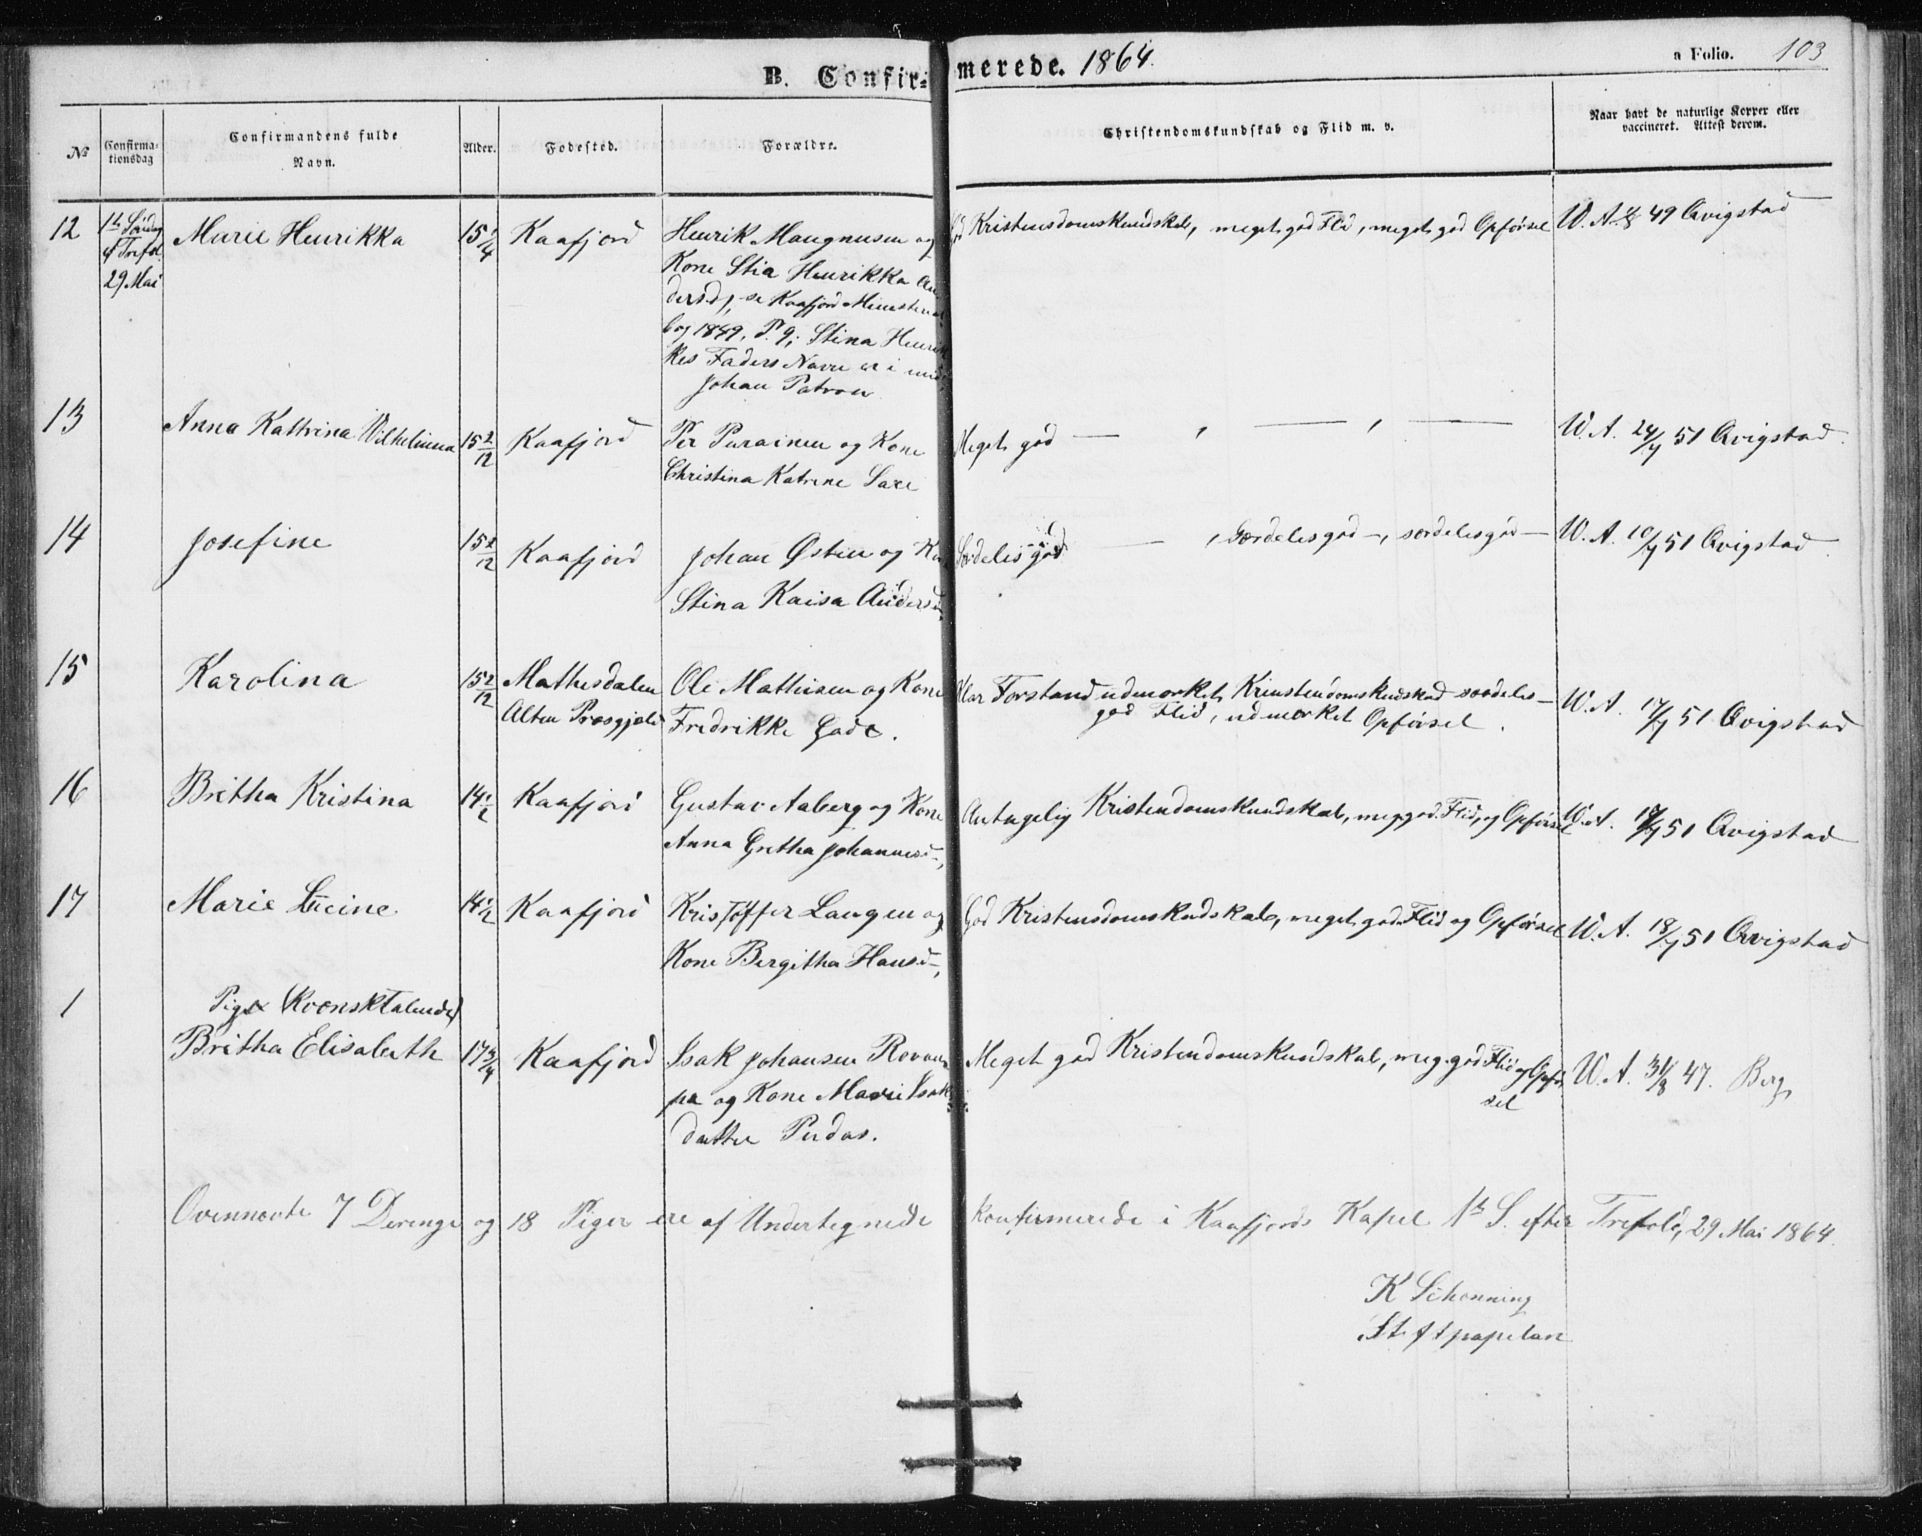 B. Confirmerede. 1864.
a Folio. 103
No
Confirmationsdag
Confirmandens fulde Navn.
Alder.
Fodested.
Forældre.
Christendomskundskab og Flid m. v.
Naar havt de naturlige Kopper eller vaccineret. Attest derom.
12
1ste Søndag
e/ Trefol.
29 Mai
Marie Henrikka
15 1/4
Kaafjord
Henrik Mangnusen og
Kone Stia Henrikka An
dersd, se Kaafjord Ministerial
bog 1849, P. 9; Stina Henrik
kes Faders Navn er i
Johan Patron
God Kristensdomskundskab, meget god Flid, meget god Opførsel
W. A. 49 Qvigstad
13
Anna Kattrina Wilhelmina
15 2/12
Kaafjord
Per Parainen og Kone
Christina Katrine Sare
Meget god — , — , —
W. A. 24/7 51 Qvigstad.
14
Josefine
15 2/12
Kaafjord
Johan Østen og Kone
Stina Kaisa Andersd.
Særdeles god — , Særdeles god —, særdeles god —
W. A. 10/7 51 Qvigstad.
15
Karolina
15 2/12
Mathisdalen
Alten Præsgjeld
Ole Mathisen og Kone
Fredrikke Gade.
Klar Forstand udmærket Krinstendomskudskab særdeles
god Flid, udmærket Opførsel.
W. A. 17/7 51 Qvigstad
16
Britha Kristina
14 1/2
Kaafjord
Gustav Aaberg og Kone
Anna Gretha Johannesd.,
Antagelig Kristendomskundskab, meg. god Flid, og Opførsel
W. A. 18/7 51 Qvigstad
17
Marie Lucine
14 1/2
Kaafjord
Kristoffer Langen og
Kone Bergitha Hansd.,
God Kristensdomskudskab, meget god Flid og Opførsel
W. A. 18/7 51 Qvigstad
Pige (Kvænsktalende)
1
Britha Elisabeth
17 3/4
Kaafjord
Isak Johansen Rovan
pa og Kone Marie Isak
datter Perdas.
Meget god Kristendomskundskab, meg. god Flid og Opfør
sel
W. A. 31/8 47. Berg,
Ovennævte 7 Drenge og 18 Piger ere af Undertegnede konfirmerede i Kaafjords Kapel 1ste S. efter Trefold, 29 Mai 1864.
K Schonning
Stiftpapelan